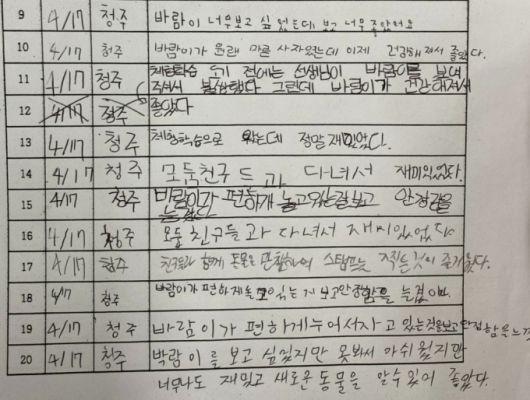 9 4/17 청주 바람이 너무 보고 싶었는데 보고 너무 좋았어요
10 4/17 청주 바람이가 원래 마른 사자였는데 이제 건강해져서 좋았다.
11 4/17 청주 체험학습 오기 전에는 선생님이 바람이를 보여
주셔서 불쌍했다 그런데 바람이가 건강해져서
12 4/17 청주 좋았다
13 4/17 청주 체험학습으로 왔는데 정말 재미있었다.
14 4/17 청주 모둠친구들과 다녀서 재미있었다.
15 4/17 청주 바람이가 편하게 놀고있는걸 보고 안정감을
느꼈다
16 4/17 청주 모둠 친구들과 다녀서 재미있었다
17 4/17 청주 친구들과 함께 동물을 관찰하며 스탬프를 찍는것이 즐거웠다.
18 4/17 청주 바람이가 편하게 있는게 보고 안정함을 느꼈어.
19 4/17 청주 바람이가 편하게 누어서 자고 있는것을 보고 안정함을 느
20 4/17 청주 박람이를 보고 싶었지만 못봐서 아쉬웠지만
너무나도 재밌고 새로운 동물을 알수 있어 좋았다.